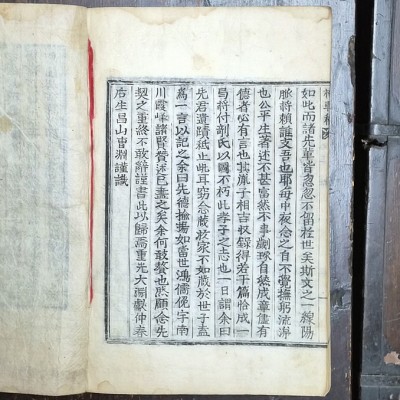 如此而諸先輩皆忽忽不留在世矣斯文之一線陽
脉將賴誰支吾也耶每中夜念之自不覺撫躬流涕
也公平生著述不甚富然不事劌琢自然成章儘有
德者必有言也其胤子相吉収錄得若干篇恰成一
局將付剞氏以圖不朽此孝子之志也一日謂余曰
先君遺蹟秪止此耳窃念藏於家不如藏於世子盍
爲一言以記之余曰先德掄揚如當世鴻儒俛宇南
川霞峰諸賢贊述已盡之矣余何敢贅也然顧念先
契之重終不敢辭謹書此以歸焉重光大淵獻仲春
后生昌山曺淵謹識